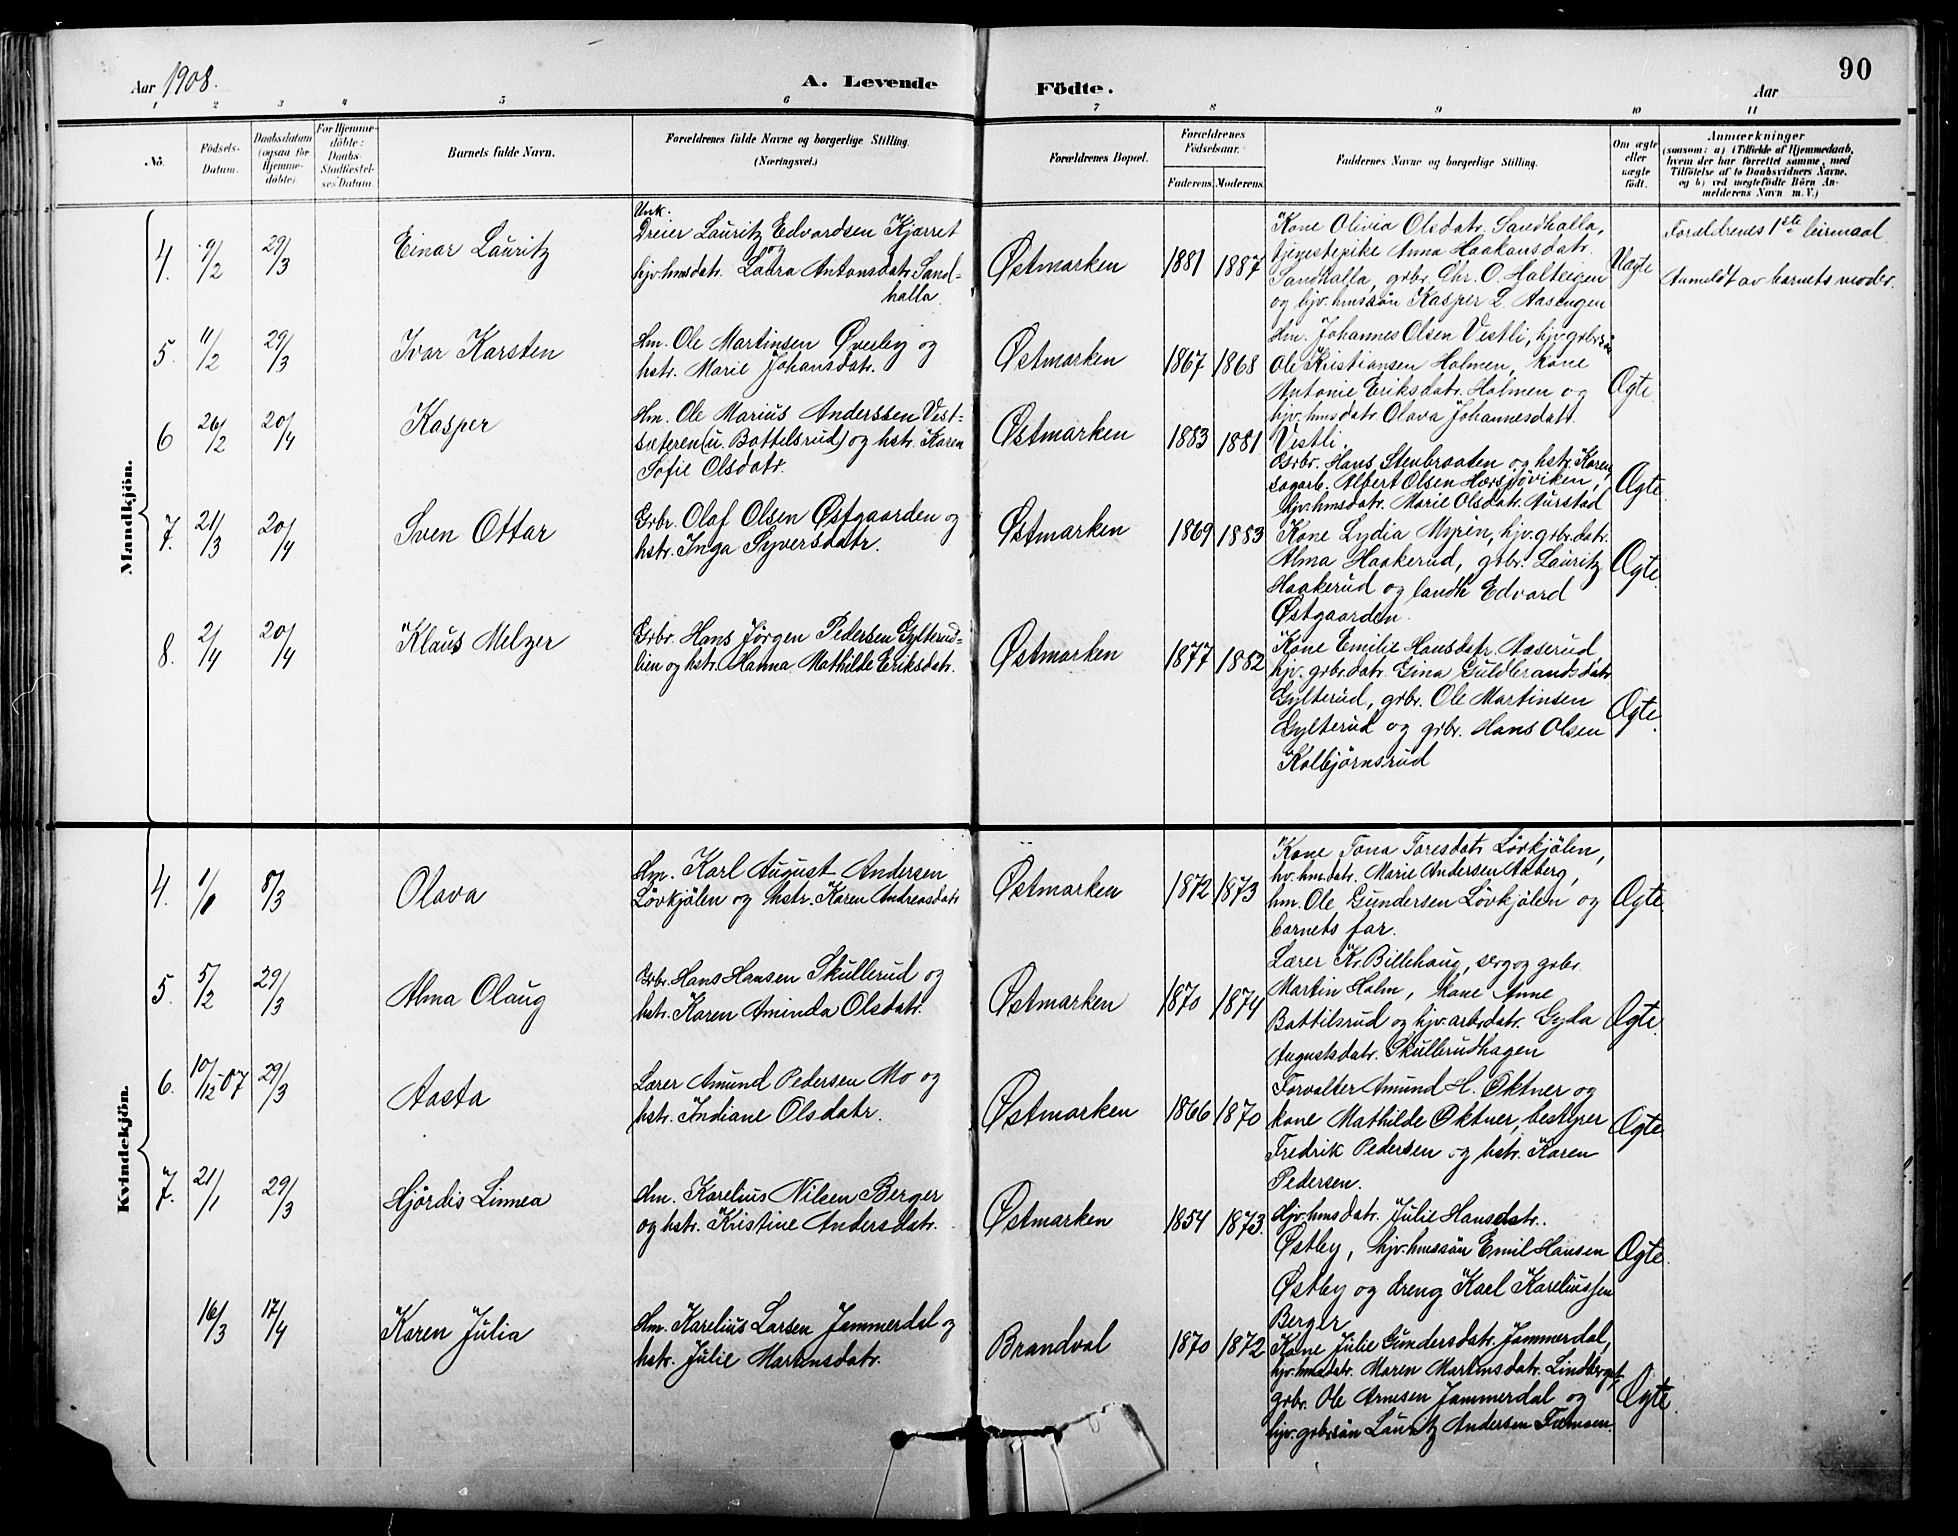 90
Aar 1908.
A. Levende
Födte.
Aar
1 2 3 4 5 6 7 8 9 10 11
No.
Födsels-
Datum.
Daabsdatum
(ogsaa for
Hjemme-
döbte).
For Hjemme-
döbte:
Daabs-
Stadfæstel-
ses Datum.
Barnets fulde Navn.
Forældrenes fulde Navne og borgerlige Stilling.
(Næringsvei.)
Forældrenes Bopæl.
Forældrenes
Födselsaar.
Faderens.
Moderens.
Faddernes Navne og borgerlige Stilling.
Om ægte
eller
uægte
födt.
Anmærkninger
(saasom: a) i Tilfælde af Hjemmedaab,
hvem der har forrettet samme, med
Tilföielse af to Daabsvidners Navne.
og b) ved uægtefödte Börn An-
melderens Navn m. V.)
Mandkjön.
4.
9/2
29/3
Einar Lauritz
Unk.
Dreier Lauritz Edvardsen Kjærret
og
hjv. hmsdatr. Laura Antonsdatr. Sand-
halla.
Østmarken
1881
1887
Kone Olivia Olsdatr. Sandhalla,
tjenestepike Anna Haakansdatr.
Sandhalla, grbr. Chr. O. Haltvegen
og hjv. hmssön Kasper L. Aasengen
Uægte
Forældrenes 1ste leirmaal
Anmeldt av barnets moder.
5.
11/2
29/3
Ivar Karsten
Hm. Ole Martinsen Øverby og
hstr. Marie Johansdatr.
Østmarken
1867
1868
Hm. Johannes Olsen Vestli, hjv. grbrsön
Ole Kristiansen Holmen, kone
Antonie Eriksdatr. Holmen og
hjv. hmsdatr. Olava Johannesdatr.
Vestli.
Ægte.
6
26/2
20/4
Kasper
Hm. Ole Marius Anderssen Vest-
sæteren (u. Battelsrud) og hstr. Karen
Sofie Olsdatr.
Østmarken
1883
1881
Grbr. Hans Stenbraaten og hstr. Karen,
sagarb. Albert Olsen Hærsjöviken,
hjv. hmsdatr. Marie Olsdatr. Aurstad
Ægte.
7.
21/3
20/4
Sven Ottar
Grbr. Olaf Olsen Østgaarden og
hstr. Inga Syversdatr.
Østmarken
1869
1883
Kone Lydia Myren, hjv. grbr. datr.
Alma Haakerud, grbr. Lauritz
Haakerud og landh. Edvard
Østgaarden.
Ægte.
8.
2/4
20/4
Klaus Melzer
Grbr. Hans Jörgen Pedersen Gylterud-
lien og hstr. Hanna Mathilde Eriksdatr.
Østmarken
1877
1882
Kone Emilie Hansdatr. Aaserud,
hjv. grbr. datr. Gina Guldbrandsdatr.
Gylterud, grbr. Ole Martinsen
Gylterud og grbr. Hans Olsen
Kolbjörnsrud
Ægte.
Kvindekjön.
4.
1/1
8/3
Olava
Hm. Karl August Andersen
Lövkjölen og hstr. Karen Andreasdatr.
Østmarken
1872
1873
Kone Tona Toresdatr. Lövkjölen,
hv. hmdatr. Marie Andersen Aaberg,
hm. Ole Gundersen Lövkjölen og
barnets far.
Ægte.
5.
5/2
29/3
Alma Olaug
Grbr. Hans Hansen Skullerud og
hstr. Karen Aminda Olsdatr.
Østmarken
1870
1874
Lærer Kr. Billehaug, serg og grbr.
Martin Holm, kone Anne
Battilsrud og hjv. arbr. datr. Gyda
Augustsdatr. Skullerudhagen
Ægte.
6.
10/12-07
29/3
Aasta
Lærer Amund Pedersen Mo og
hstr. Indiane Olsdatr.
Østmarken
1866
1870
Forvalter Amund H. Oktner og
kone Mathilde Oktner, bestyrer
Fredrik Pedersen og hstr. Karen
Pedersen.
Ægte.
7.
21/1
29/3
Hjördis Linnea
Hm. Karelius Nilsen Berger
og hstr. Kristine Andersdatr.
Østmarken
1854
1873.
Hjv. hmsdatr. Julie Hansdatr.
Østby, hjv. hmssön Emil Hansen
Østby og dreng Karl Kareliussen
Berger
Ægte.
16/3
17/4
Karen Julia
Hm. Karelius Larsen Jammerdal og
hstr. Julie Martinsdatr.
Brandval
1870
1872
Kone Julie Gundersdatr. Jammerdal,
hjv. hmsdatr. Maren Martinsdatr. Lindberget,
grbr. Ole Arnesen Jammerdal og
hjv. grbrsön Lauritz Andersen
Ægte.